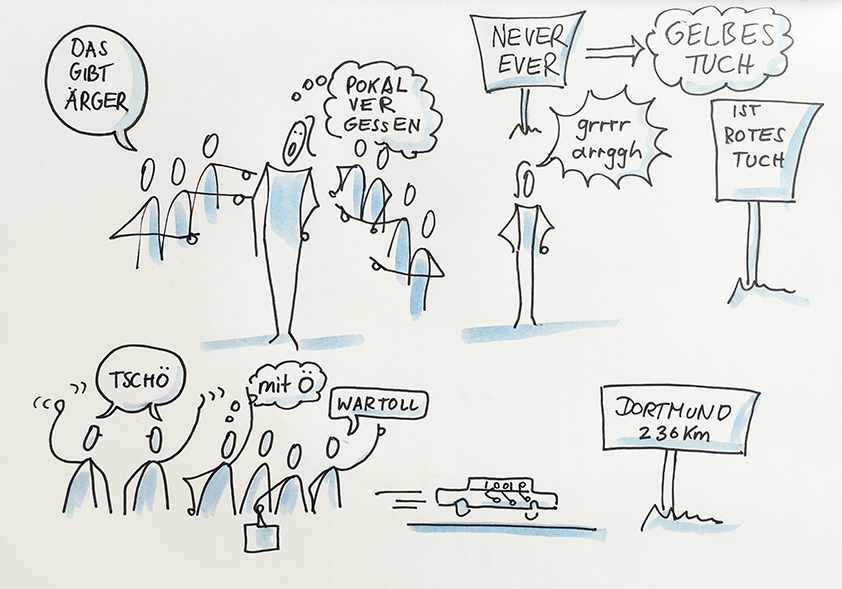 DAS
GIBT
ÄRGER
POKAL
VER
GESSEN
NEVER
EVER
GELBES
TUCH
grrrr
arrggh
IST
ROTES
TUCH
TSCHÖ
mit Ö
WAR TOLL
DORTMUND
236 Km